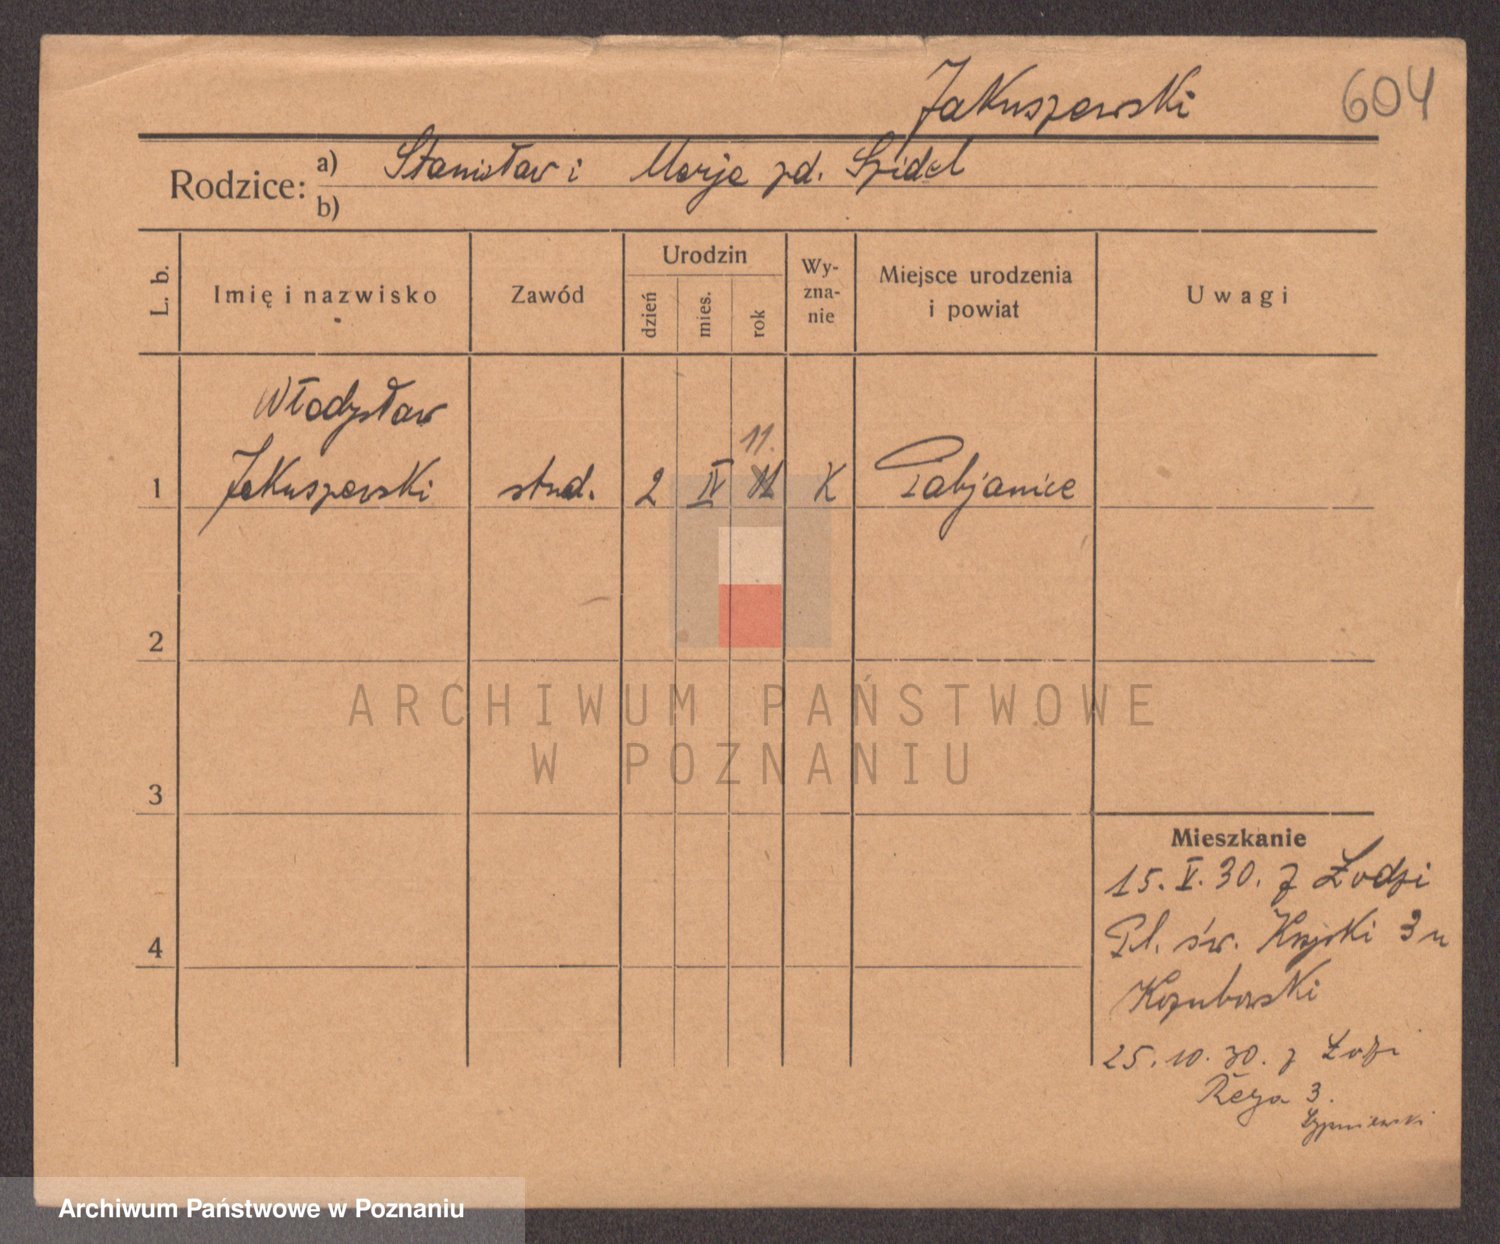 Jakuszewski
604
Rodzice: a) Stanisław i Marja zd. Szidel
b)
L. b. Imię i nazwisko Zawód Urodzin dzień mies. rok Wyznanie Miejsce urodzenia i powiat Uwagi
Władysław
11.
1 Jakuszewski stud. 2 IV K Pabjanice
2
3
4
ARCHIWUM PAŃSTWOWE
W POZNANIU
Mieszkanie
15. V. 30. z Łodzi
Pl. św. Krzyski 3 u
Kozubowski
25. 10. 30. z Łodzi
3.
Szypniewski
Archiwum Państwowe w Poznaniu